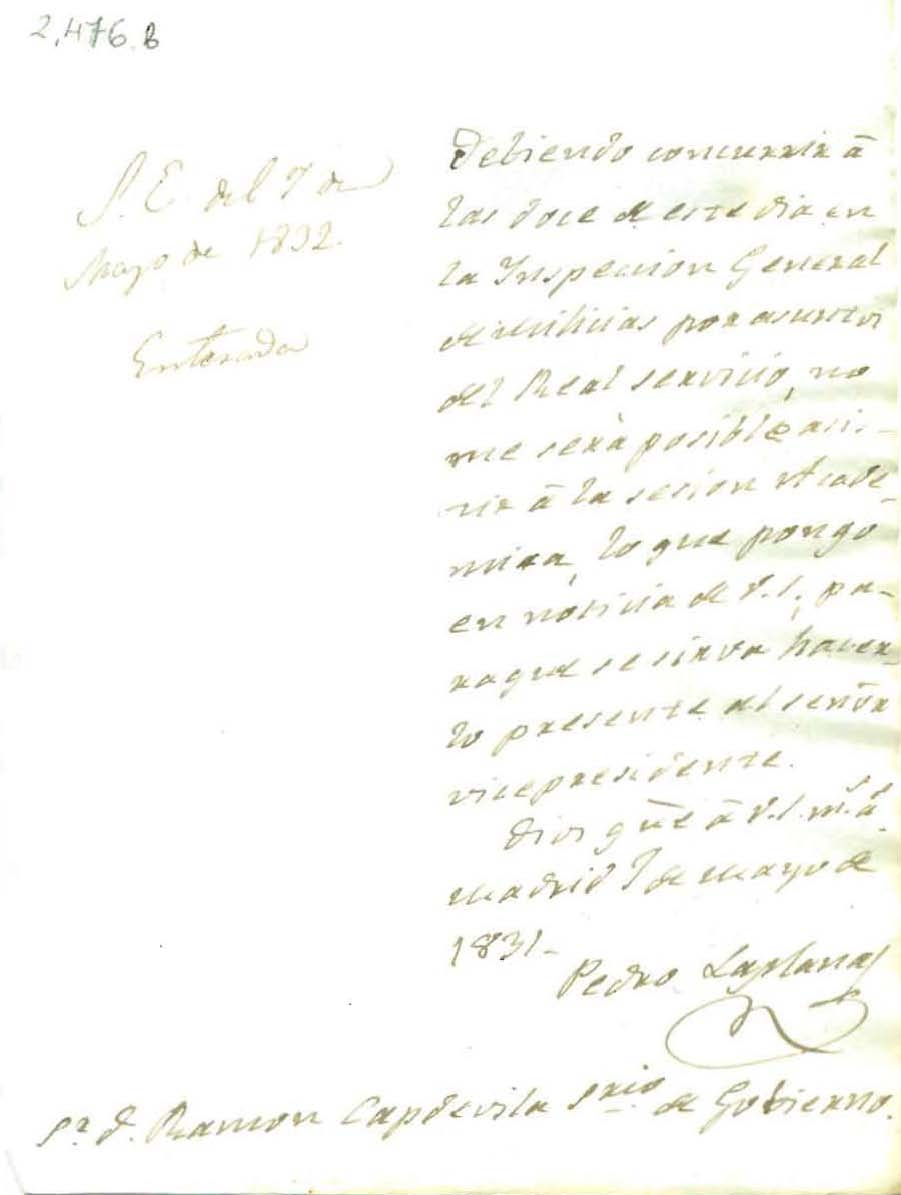 2,476.B
S. E. del 7 de
Mayo de 1832.
Enterada
Debiendo concurrir á
las doce de este dia en
la Inspeccion General
de Milicias por asuntos
del Real servicio, no
me será posible asis-
tir á la sesion Acade-
mica, lo que pongo
en noticia de V.S., pa-
ra que se sirva hacer-
lo presente al señor
vicepresidente.
Dios gũe á V.S. m.s a.s
Madrid 7 de Mayo de
1831-
Pedro Laplana
S.r D. Ramon Capdevila Srio de Gobierno.